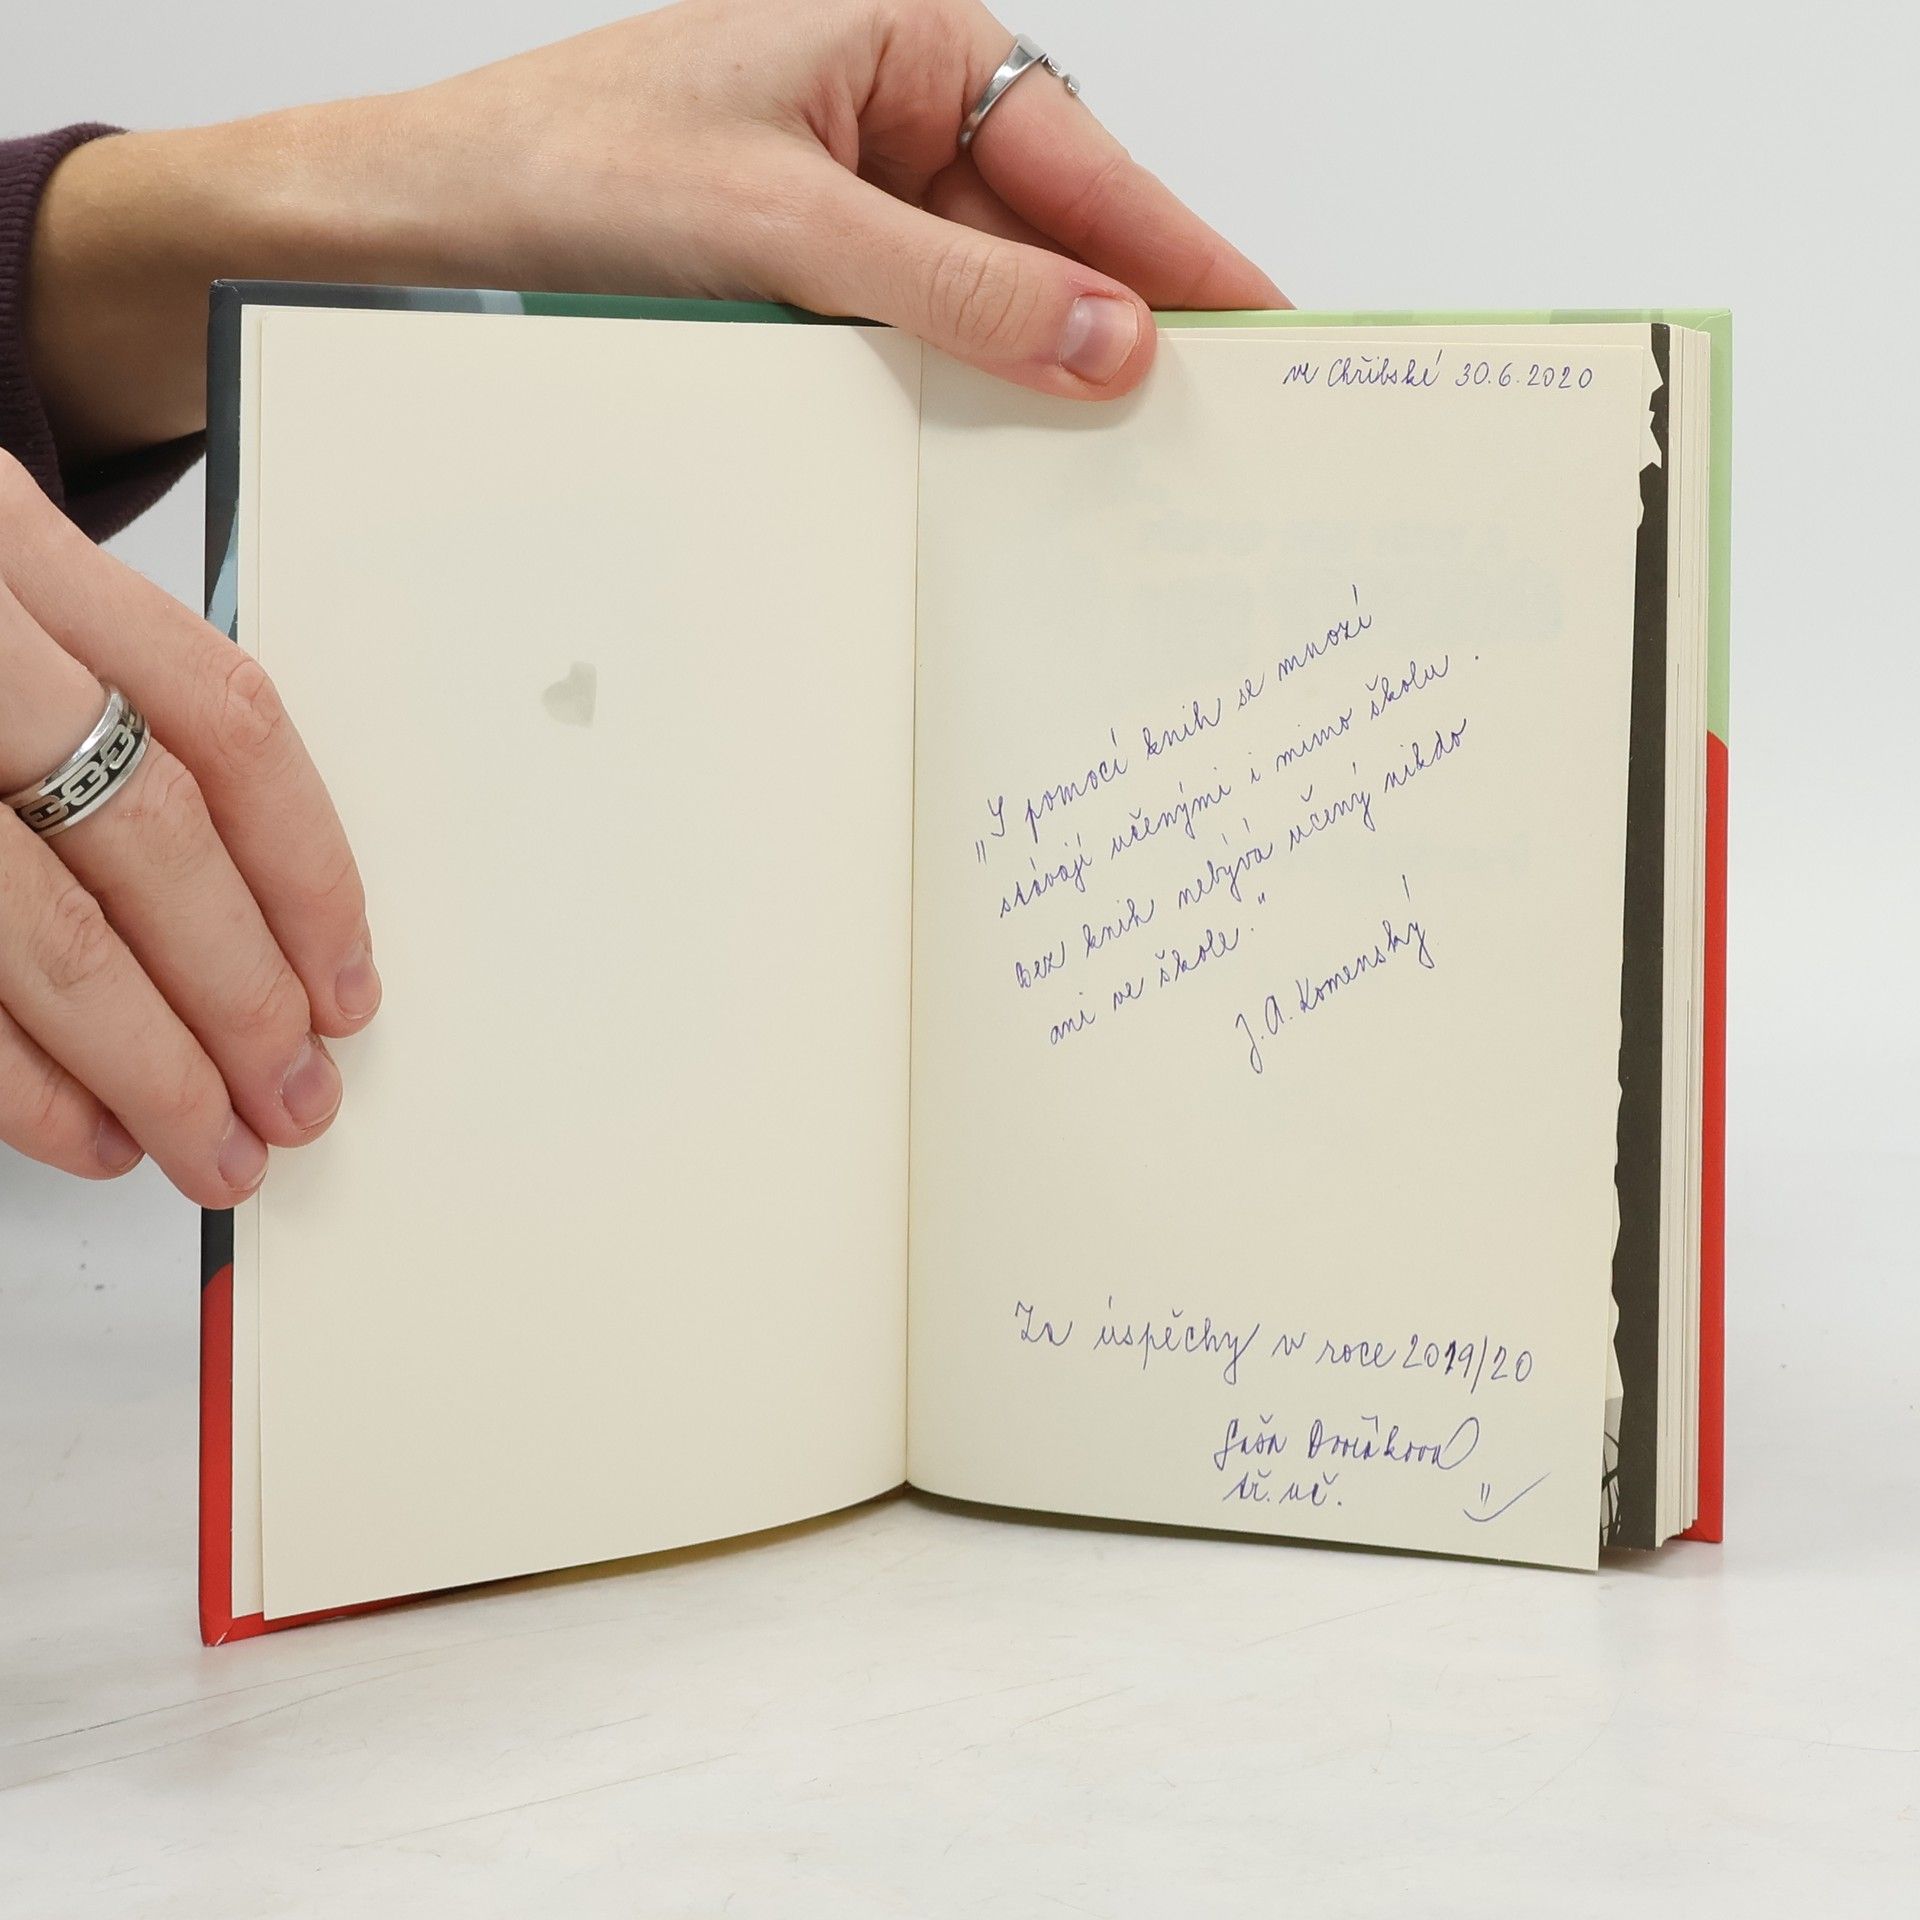 ve Chřibské 30.6.2020
„S pomocí knih se mnozí
stávají učenými i mimo školu.
Bez knih nebývá učený nikdo
ani ve škole."
J. A. Komenský
Za úspěchy v roce 2019/20
Saša Dvořáková
tř. uč.